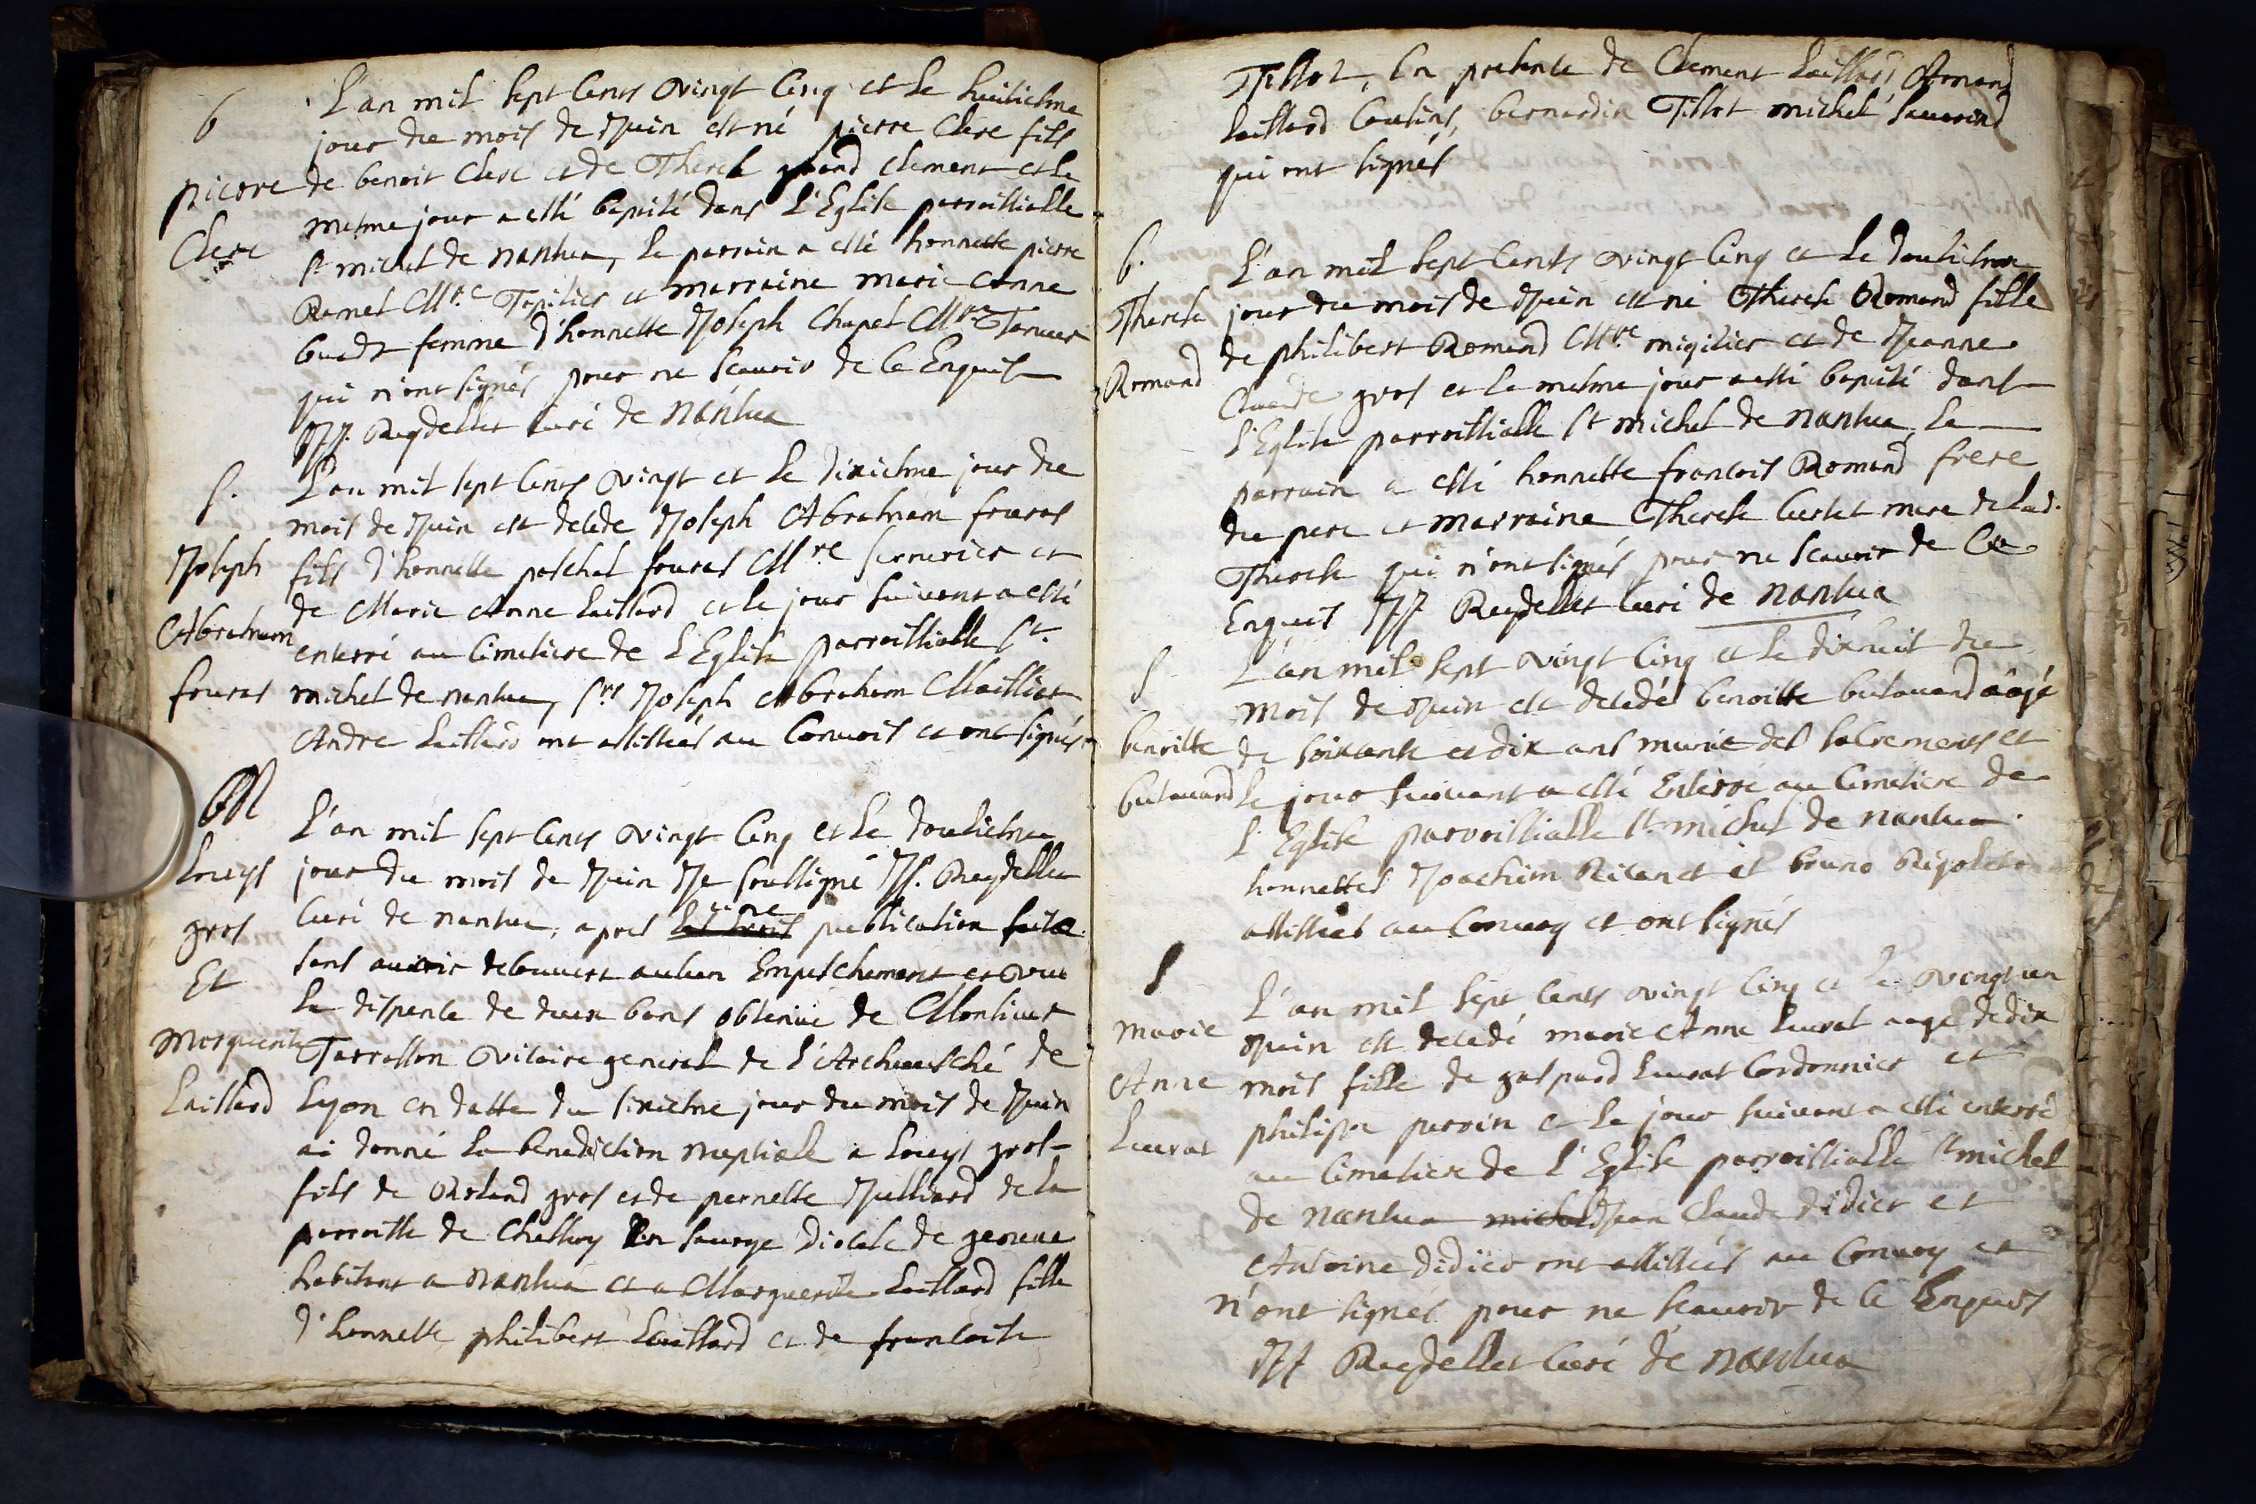 b
L'an mil sept cents vingt cinq et le huitiesme
jour du mois de Juin est né pierre Clerc fils
pierre
de benoit Clerc et de Therese grand clement et le
mesme jour a esté baptisé dans L'Eglise parroissialle
Clerc
st michel de nantua, le parrain a esté honneste pierre
Ramel Mre Tapissier et marraine marie Anne
buedt femme d'honneste Joseph Chapel Mre Tanneur
qui n'ont signés pour ne scauoir de ce Enquis
JJ. Reydellet curé de nantua
S.
L'an mil sept cents vingt et le dixiesme jour du
mois de Juin est decede Joseph Abraham fouras
Joseph
fils d'honneste paschal fouras Mre serrurier et
Abraham
de Marie Anne Laillard et le jour suivant a esté
enterré au Cimetiere de L'Eglise parroissialle st
fouras
michel de nantua, srs Joseph Abraham Maillier
Andre Laillard ont assistés au Convois et ont signés
M
L'an mil sept cents vingt cinq et le douziesme
Louys
jour du mois de Juin Je soussigné JJ. Reydellet
gros
curé de nantua, apres les trois une publication faite
Et
sans auoir decouvert aucun Empeschement et vue
la dispense de deux bans obtenüe de Monsieur
Marguerite
Terrasson vicaire general de l'Archeuesché de
Laillard
Lyon en datte du sixiesme jour du mois de Juin
ai donné la benediction nuptiale a Louys gros
fils de Roland gros et de pernette Juilliard de la
parroisse de Chessery diocese de geneue
habitant a nantua et a Marguerite Laillard fille
d'honneste philibert Laillard et de francoise
Tissot, En presence de Clement Laillard, Armand
Laillard Cousins, bernardin Tissot michel Sauarind
qui ont signés
b.
L'an mil sept cents vingt cinq et le douziesme
Therese
jour du mois de Juin est né Therese Romand fille
de philibert Romand Mre migissier et de Jeanne
Romand
Claude gros et le mesme jour a esté baptisé dans
l'Eglise parroissialle st michel de nantua, le
parrain a esté honneste francois Romand frere
du pere et marraine Therese Curlet mere de lad.
Therese qui n'ont signés pour ne scauoir de ce
Enquis JJ Reydellet curé de nantua
S
L'an mil sept vingt cinq et le dixhuit du
mois de Juin est decedé benoitte butauand aâgé
benoitte
de soixante et dix ans munie des sacrements et
butauand
le jour suiuant a esté Enterré au Cimetiere de
l'Eglise parroissialle st michel de nantua.
honnestes Joachim et bruno
assistés au Conuoy et ont signés
S
L'an mil sept cents vingt cinq et le vingt un
marie
Juin est decedé marie Anne Leurat aagé de dix
Anne
mois fille de gaspard Leurat Cordonnier et
Leurat
philipa perrin et le jour suivant a esté enterré
au Cimetiere de l'Eglise parroissialle st michel
de nantua michel Jean Claude didier et
Antoine didier ont assistés au Conuoy et
n'ont signés pour ne scauoir de ce Enquis
JJ Reydellet curé de nantua